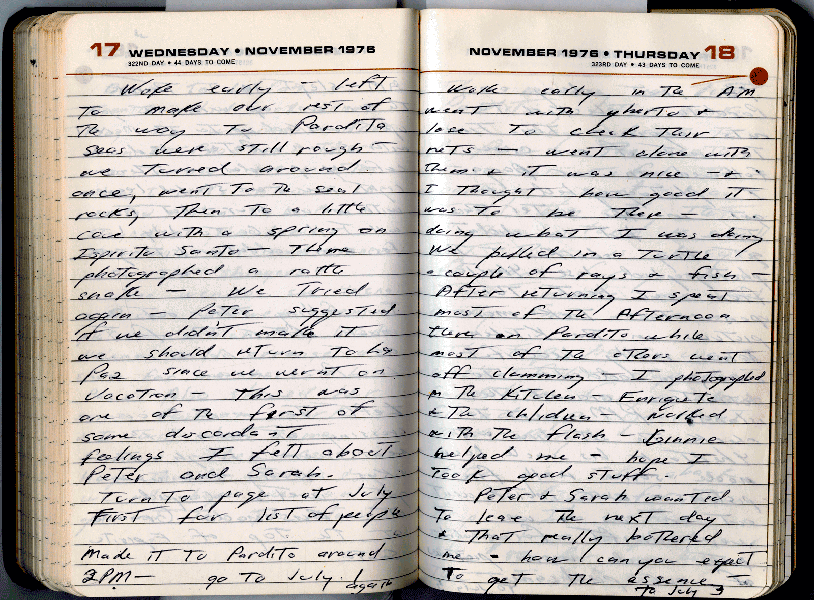 17 WEDNESDAY • NOVEMBER 1976
322ND DAY • 44 DAYS TO COME
Woke early – left
To make our rest of
The way To Pardito
seas were still rough –
we Turned around
once, went To The seal
rocks, Then To a little
cove with a spring on
Espirito Santo – Theme
photographed a rattle
snake – We Tried
again – Peter suggested
if we didn't make it
we should return To La
Paz since we weren't on
Vacation – This was
one of The first of
some discordant
feelings I felt about
Peter and Sarah.
Turn To page at July
First for list of people
Made it To Pardito around
2PM – go To July 1
again
NOVEMBER 1976 • THURSDAY 18
323RD DAY • 43 DAYS TO COME
Woke early in The AM
went with &
Jose To check Their
nets – went alone with
them & it was nice – &
I Thought how good it
was To be There –
doing what I was doing
We pulled in a Turtle
a couple of rays & fish –
After returning I spent
most of The Afternoon
there on Pardito while
most of The others went
off clamming – I photographed
in The Kitchen – Enriquete
& The children –
with The flash – Ginnie
helped me – hope I
Took good stuff.
Peter & Sarah wanted
To leave The next day
& That really bothered
me – how can you expect
To get The essence –
To July 3